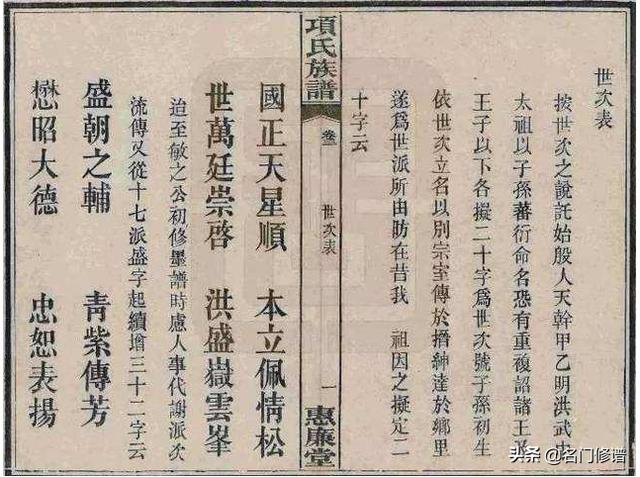 世次表
按世次之說託始殷人天幹甲乙明洪武中
太祖以子孫蕃衍命名恐有重複詔諸王及
王子以下各擬二十字爲世次號子孫初生
依世次立名以別宗室傳於搢紳達於鄉里
遂爲世派所由昉在昔我 祖因之擬定二
十字云
項氏族譜
卷
世次表
一
惠廉堂
國正天星順 本立佩情松
世萬廷崇啓 洪盛嶽雲峯
迨至敏之公初修墨譜時慮人事代謝派次
流傳又從十七派盛字起續增三十二字云
盛朝之輔 青紫傳芳
懋昭大德 忠恕表揚
头条 @名门修谱